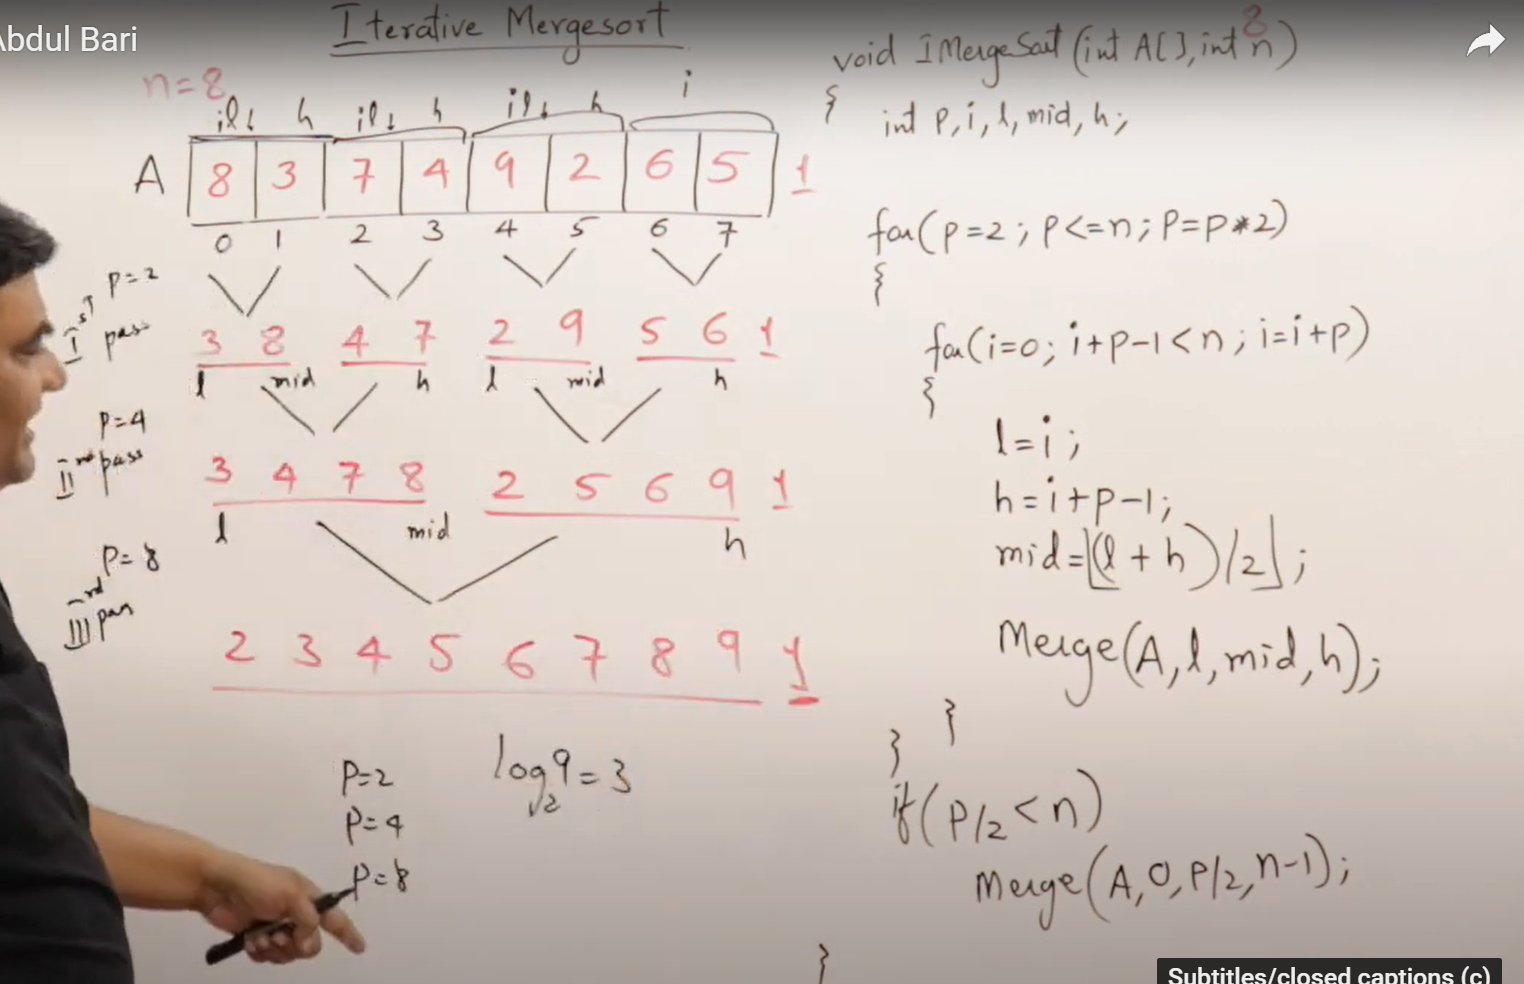 Abdul Bari
Iterative Mergesort
n=8
i l h i l h i l h i
A 8 3 7 4 9 2 6 5 1
0 1 2 3 4 5 6 7
P=2
Ist pass
3 8 4 7 2 9 5 6 1
l mid h l mid h
P=4
IInd pass
3 4 7 8 2 5 6 9 1
l mid h
P=8
IIIrd pass
2 3 4 5 6 7 8 9 1
P=2 log₂9=3
P=4
P=8
8
void IMergeSort(int A[], int n)
{
int p, i, l, mid, h;
for(p=2; p<=n; p=p*2)
{
for(i=0; i+p-1<n; i=i+p)
{
l=i;
h=i+p-1;
mid=⌊(l+h)/2⌋;
Merge(A, l, mid, h);
}
}
if(p/2<n)
Merge(A, 0, p/2, n-1);
}
Subtitles/closed captions (c)